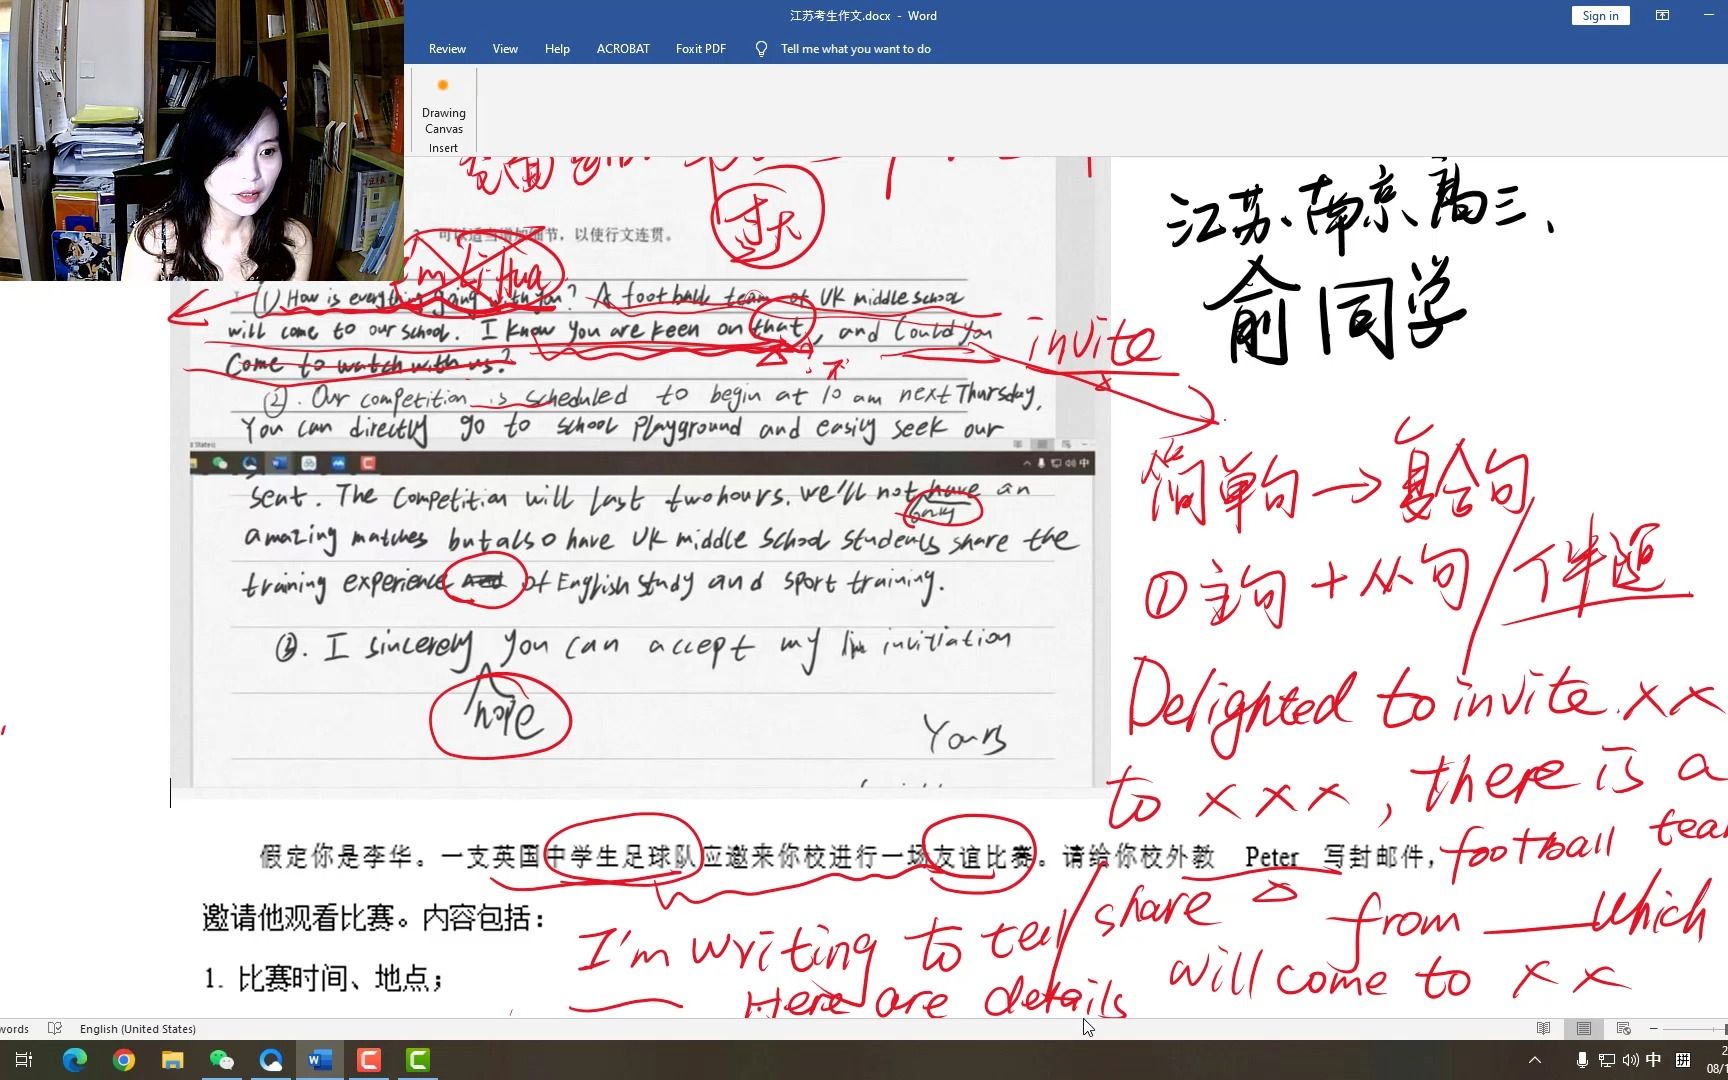 江苏考生作文.docx - Word
Sign in
Review View Help ACROBAT Foxit PDF Tell me what you want to do
Drawing
Canvas
Insert
过大
可以适当增加细节，以使行文连贯。
I'm Li Hua
(1) How is everything going with you? A football team of UK middle school
will come to our school. I know you are keen on that, and could you
come to watch with us?
invite
②. Our competition is scheduled to begin at 10 am next Thursday,
You can directly go to school playground and easily seek our
seat. The competition will last two hours. we'll not have an
only
amazing matches but also have UK middle school students share the
training experience and of English study and sport training.
③. I sincerely you can accept my invitiation
hope
Yours
江苏、南京、高三、
俞同学
简单句→复合句
①主句+从句/伴随
Delighted to invite xx
to xxx, there is a
football team
from which
will come to xx
假定你是李华。一支英国中学生足球队应邀来你校进行一场友谊比赛。请给你校外教 Peter 写封邮件，
邀请他观看比赛。内容包括：
1. 比赛时间、地点；
I'm writing to tell/share
Here are details
words English (United States)
中 拼
08/1